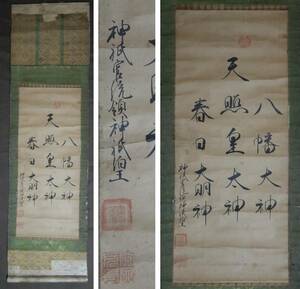 八幡大神
天照皇太神
春日大明神
神祇官統領神祇伯王
八幡大神
天照皇太神
春日大明神
神祇官統領神祇伯王